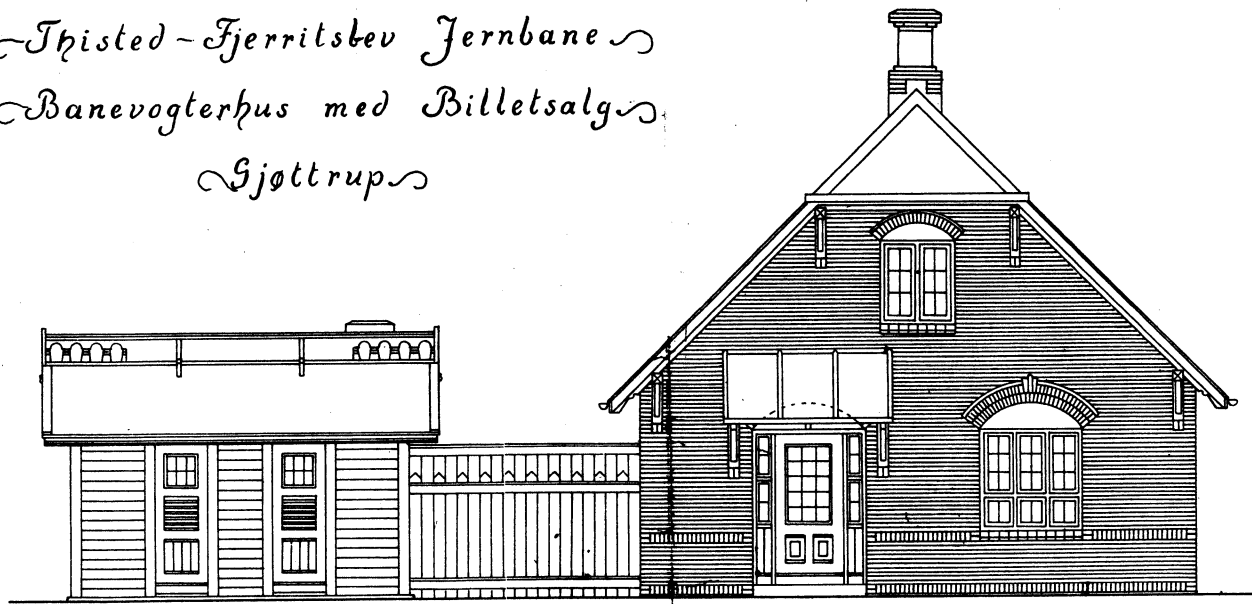 Thisted - Fjerritslev Jernbane
Banevogterhus med Billetsalg
Gjøttrup